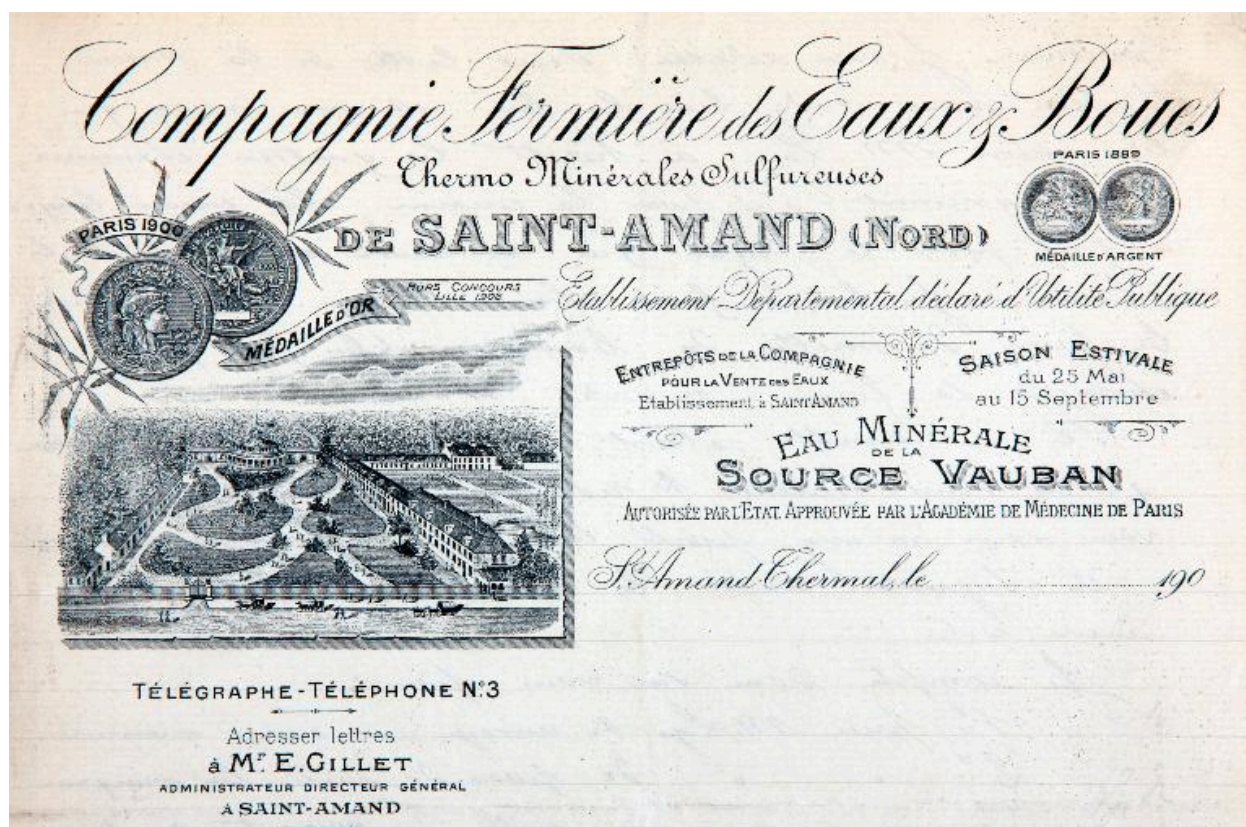 Compagnie Fermière des Eaux & Boues
Thermo Minérales Sulfureuses
DE SAINT-AMAND (NORD)
PARIS 1889
MÉDAILLE D'ARGENT
PARIS 1900
MÉDAILLE D'OR
HORS CONCOURS
LILLE 1902
Etablissement Départemental déclaré d'Utilité Publique
ENTREPÔTS DE LA COMPAGNIE
POUR LA VENTE DES EAUX
Etablissement à SAINT AMAND
SAISON ESTIVALE
du 25 Mai
au 15 Septembre
EAU MINÉRALE
DE LA
SOURCE VAUBAN
AUTORISÉE PAR L'ETAT APPROUVÉE PAR L'ACADÉMIE DE MÉDECINE DE PARIS
St Amand Thermal, le 190
TÉLÉGRAPHE - TÉLÉPHONE N°3
Adresser lettres
à Mr. E. GILLET
ADMINISTRATEUR DIRECTEUR GÉNÉRAL
A SAINT-AMAND